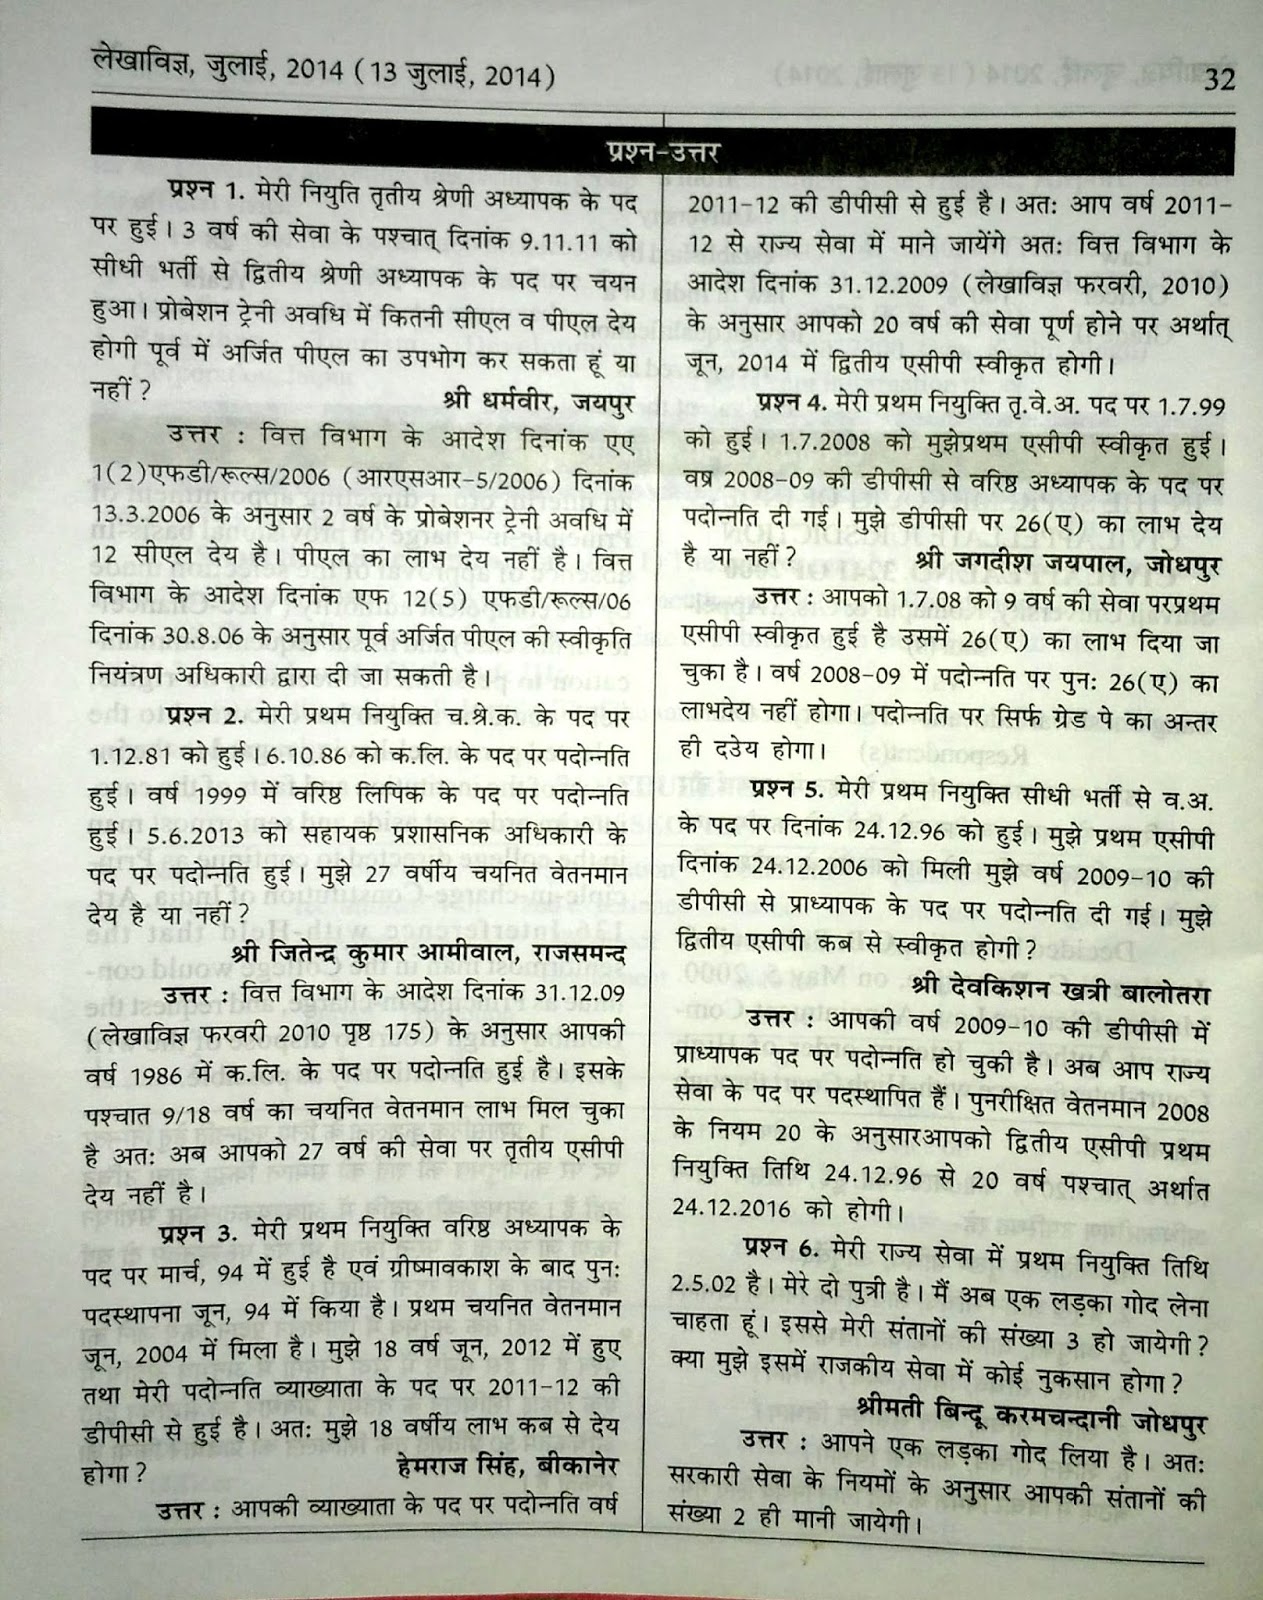 लेखाविज्ञ, जुलाई, 2014 (13 जुलाई, 2014)
32
प्रश्न-उत्तर
प्रश्न 1. मेरी नियुति तृतीय श्रेणी अध्यापक के पद
पर हुई। 3 वर्ष की सेवा के पश्चात् दिनांक 9.11.11 को
सीधी भर्ती से द्वितीय श्रेणी अध्यापक के पद पर चयन
हुआ। प्रोबेशन ट्रेनी अवधि में कितनी सीएल व पीएल देय
होगी पूर्व में अर्जित पीएल का उपभोग कर सकता हूं या
नहीं ? श्री धर्मवीर, जयपुर
उत्तर : वित्त विभाग के आदेश दिनांक एए
1(2)एफडी/रूल्स/2006 (आरएसआर-5/2006) दिनांक
13.3.2006 के अनुसार 2 वर्ष के प्रोबेशनर ट्रेनी अवधि में
12 सीएल देय है। पीएल का लाभ देय नहीं है। वित्त
विभाग के आदेश दिनांक एफ 12(5) एफडी/रूल्स/06
दिनांक 30.8.06 के अनुसार पूर्व अर्जित पीएल की स्वीकृति
नियंत्रण अधिकारी द्वारा दी जा सकती है।
प्रश्न 2. मेरी प्रथम नियुक्ति च.श्रे.क. के पद पर
1.12.81 को हुई। 6.10.86 को क.लि. के पद पर पदोन्नति
हुई। वर्ष 1999 में वरिष्ठ लिपिक के पद पर पदोन्नति
हुई। 5.6.2013 को सहायक प्रशासनिक अधिकारी के
पद पर पदोन्नति हुई। मुझे 27 वर्षीय चयनित वेतनमान
देय है या नहीं ?
श्री जितेन्द्र कुमार आमीवाल, राजसमन्द
उत्तर : वित्त विभाग के आदेश दिनांक 31.12.09
(लेखाविज्ञ फरवरी 2010 पृष्ठ 175) के अनुसार आपकी
वर्ष 1986 में क.लि. के पद पर पदोन्नति हुई है। इसके
पश्चात 9/18 वर्ष का चयनित वेतनमान लाभ मिल चुका
है अत: अब आपको 27 वर्ष की सेवा पर तृतीय एसीपी
देय नहीं है।
प्रश्न 3. मेरी प्रथम नियुक्ति वरिष्ठ अध्यापक के
पद पर मार्च, 94 में हुई है एवं ग्रीष्मावकाश के बाद पुन:
पदस्थापना जून, 94 में किया है। प्रथम चयनित वेतनमान
जून, 2004 में मिला है। मुझे 18 वर्ष जून, 2012 में हुए
तथा मेरी पदोन्नति व्याख्याता के पद पर 2011-12 की
डीपीसी से हुई है। अत: मुझे 18 वर्षीय लाभ कब से देय
होगा ? हेमराज सिंह, बीकानेर
उत्तर : आपकी व्याख्याता के पद पर पदोन्नति वर्ष
2011-12 की डीपीसी से हुई है। अत: आप वर्ष 2011-
12 से राज्य सेवा में माने जायेंगे अत: वित्त विभाग के
आदेश दिनांक 31.12.2009 (लेखाविज्ञ फरवरी, 2010)
के अनुसार आपको 20 वर्ष की सेवा पूर्ण होने पर अर्थात्
जून, 2014 में द्वितीय एसीपी स्वीकृत होगी।
प्रश्न 4. मेरी प्रथम नियुक्ति तृ.वे.अ. पद पर 1.7.99
को हुई। 1.7.2008 को मुझेप्रथम एसीपी स्वीकृत हुई।
वष्र 2008-09 की डीपीसी से वरिष्ठ अध्यापक के पद पर
पदोन्नति दी गई। मुझे डीपीसी पर 26(ए) का लाभ देय
है या नहीं ? श्री जगदीश जयपाल, जोधपुर
उत्तर : आपको 1.7.08 को 9 वर्ष की सेवा परप्रथम
एसीपी स्वीकृत हुई है उसमें 26(ए) का लाभ दिया जा
चुका है। वर्ष 2008-09 में पदोन्नति पर पुन: 26(ए) का
लाभदेय नहीं होगा। पदोन्नति पर सिर्फ ग्रेड पे का अन्तर
ही दउेय होगा।
प्रश्न 5. मेरी प्रथम नियुक्ति सीधी भर्ती से व.अ.
के पद पर दिनांक 24.12.96 को हुई। मुझे प्रथम एसीपी
दिनांक 24.12.2006 को मिली मुझे वर्ष 2009-10 की
डीपीसी से प्राध्यापक के पद पर पदोन्नति दी गई। मुझे
द्वितीय एसीपी कब से स्वीकृत होगी ?
श्री देवकिशन खत्री बालोतरा
उत्तर : आपकी वर्ष 2009-10 की डीपीसी में
प्राध्यापक पद पर पदोन्नति हो चुकी है। अब आप राज्य
सेवा के पद पर पदस्थापित हैं। पुनरीक्षित वेतनमान 2008
के नियम 20 के अनुसारआपको द्वितीय एसीपी प्रथम
नियुक्ति तिथि 24.12.96 से 20 वर्ष पश्चात् अर्थात
24.12.2016 को होगी।
प्रश्न 6. मेरी राज्य सेवा में प्रथम नियुक्ति तिथि
2.5.02 है। मेरे दो पुत्री है। मैं अब एक लड़का गोद लेना
चाहता हूं। इससे मेरी संतानों की संख्या 3 हो जायेगी ?
क्या मुझे इसमें राजकीय सेवा में कोई नुकसान होगा ?
श्रीमती बिन्दू करमचन्दानी जोधपुर
उत्तर : आपने एक लड़का गोद लिया है। अत:
सरकारी सेवा के नियमों के अनुसार आपकी संतानों की
संख्या 2 ही मानी जायेगी।